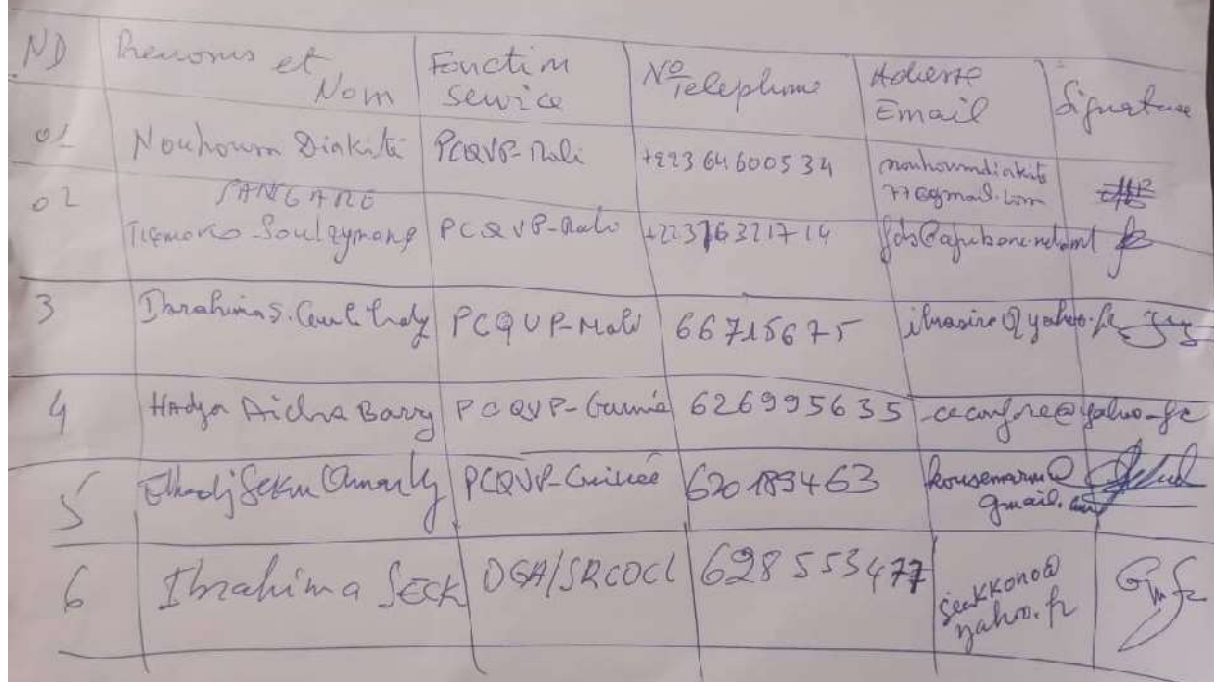 ND Prenoms et Nom Fonction Service N° Telephone Adresse Email Signature
01 Nouhoum Diakité PCQVP-Mali +223 64600534 nouhoumdiakite77@gmail.com
02 SANGARE Tiemoko Souleymane PCQVP-Mali +223 76321714
3 Ibrahima S. Coulibaly PCQVP-Mali 66715675 ibrasire@yahoo.fr
4 Hadja Aicha Barry PCQVP-Guinée 626995635 @yahoo-fr
5 Elhadj Sekou PCQVP-Guinée 620189463 @gmail.com
6 Ibrahima SECK 628553477 seckkono@yahoo.fr